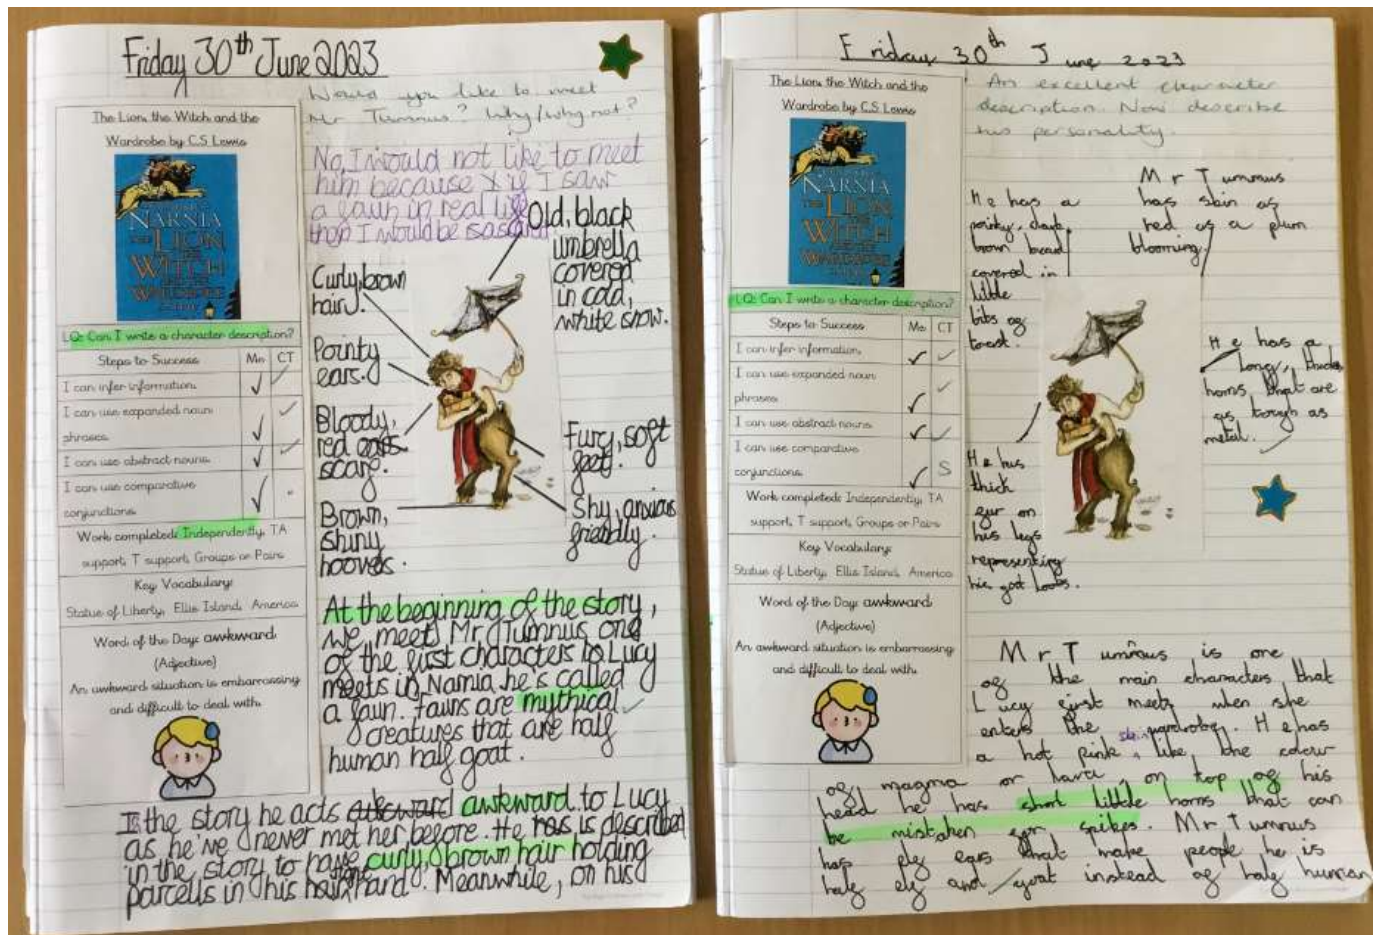 Friday 30th June 2023
The Lion, the Witch and the
Wardrobe by C.S. Lewis
NARNIA
THE LION
THE
WITCH
AND THE
WARDROBE
LQ: Can I write a character description?
Steps to Success
Me
CT
I can infer information.
I can use expanded noun
phrases.
I can use abstract nouns.
I can use comparative
conjunctions.
Work completed: Independently, TA
support, T support, Groups or Pairs
Key Vocabulary:
Statue of Liberty, Ellis Island, America
Word of the Day: awkward
(Adjective)
An awkward situation is embarrassing
and difficult to deal with.
Would you like to meet
Mr Tumnus? Why/why not?
No, I would not like to meet
him because if I saw
a faun in real life
then I would be so scared
Old, black
umbrella
covered
in cold,
white snow.
Curly, brown
hair.
Pointy
ears.
Bloody,
red
scarf.
Brown,
shiny
hooves.
Fury, soft
feet.
Shy, anxious
friendly.
At the beginning of the story,
we meet Mr Tumnus one
of the first characters Lucy
meets in Narnia he's called
a faun. Fauns are mythical
creatures that are half
human half goat.
In the story he acts awkward awkward to Lucy
as he've never met her before. He has is described
in the story to have curly, brown hair holding
parcells in his hand. Meanwhile, on his
Friday 30th June 2023
The Lion, the Witch and the
Wardrobe by C.S. Lewis
NARNIA
THE LION
THE
WITCH
AND THE
WARDROBE
LQ: Can I write a character description?
Steps to Success
Me
CT
I can infer information.
I can use expanded noun
phrases.
I can use abstract nouns.
I can use comparative
conjunctions.
S
Work completed: Independently, TA
support, T support, Groups or Pairs
Key Vocabulary:
Statue of Liberty, Ellis Island, America
Word of the Day: awkward
(Adjective)
An awkward situation is embarrassing
and difficult to deal with.
An excellent character
description. Now describe
his personality.
He has a
pointy, dark
brown beard
covered in
little
bits of
toast.
Mr Tumnus
has skin as
red as a plum
blooming.
He has a
long, thick
horns that are
as tough as
metal.
He has
thick
fur on
his legs
representing
his goat hoofs.
Mr Tumnus is one
of the main characters that
Lucy first meets when she
enters the wardrobe. He has
a hot pink skin, like the colour
of magma or lava, on top of his
head he has short little horns that can
be mistaken for spikes. Mr Tumnus
has elf ears that make people he is
half elf and goat instead of half human